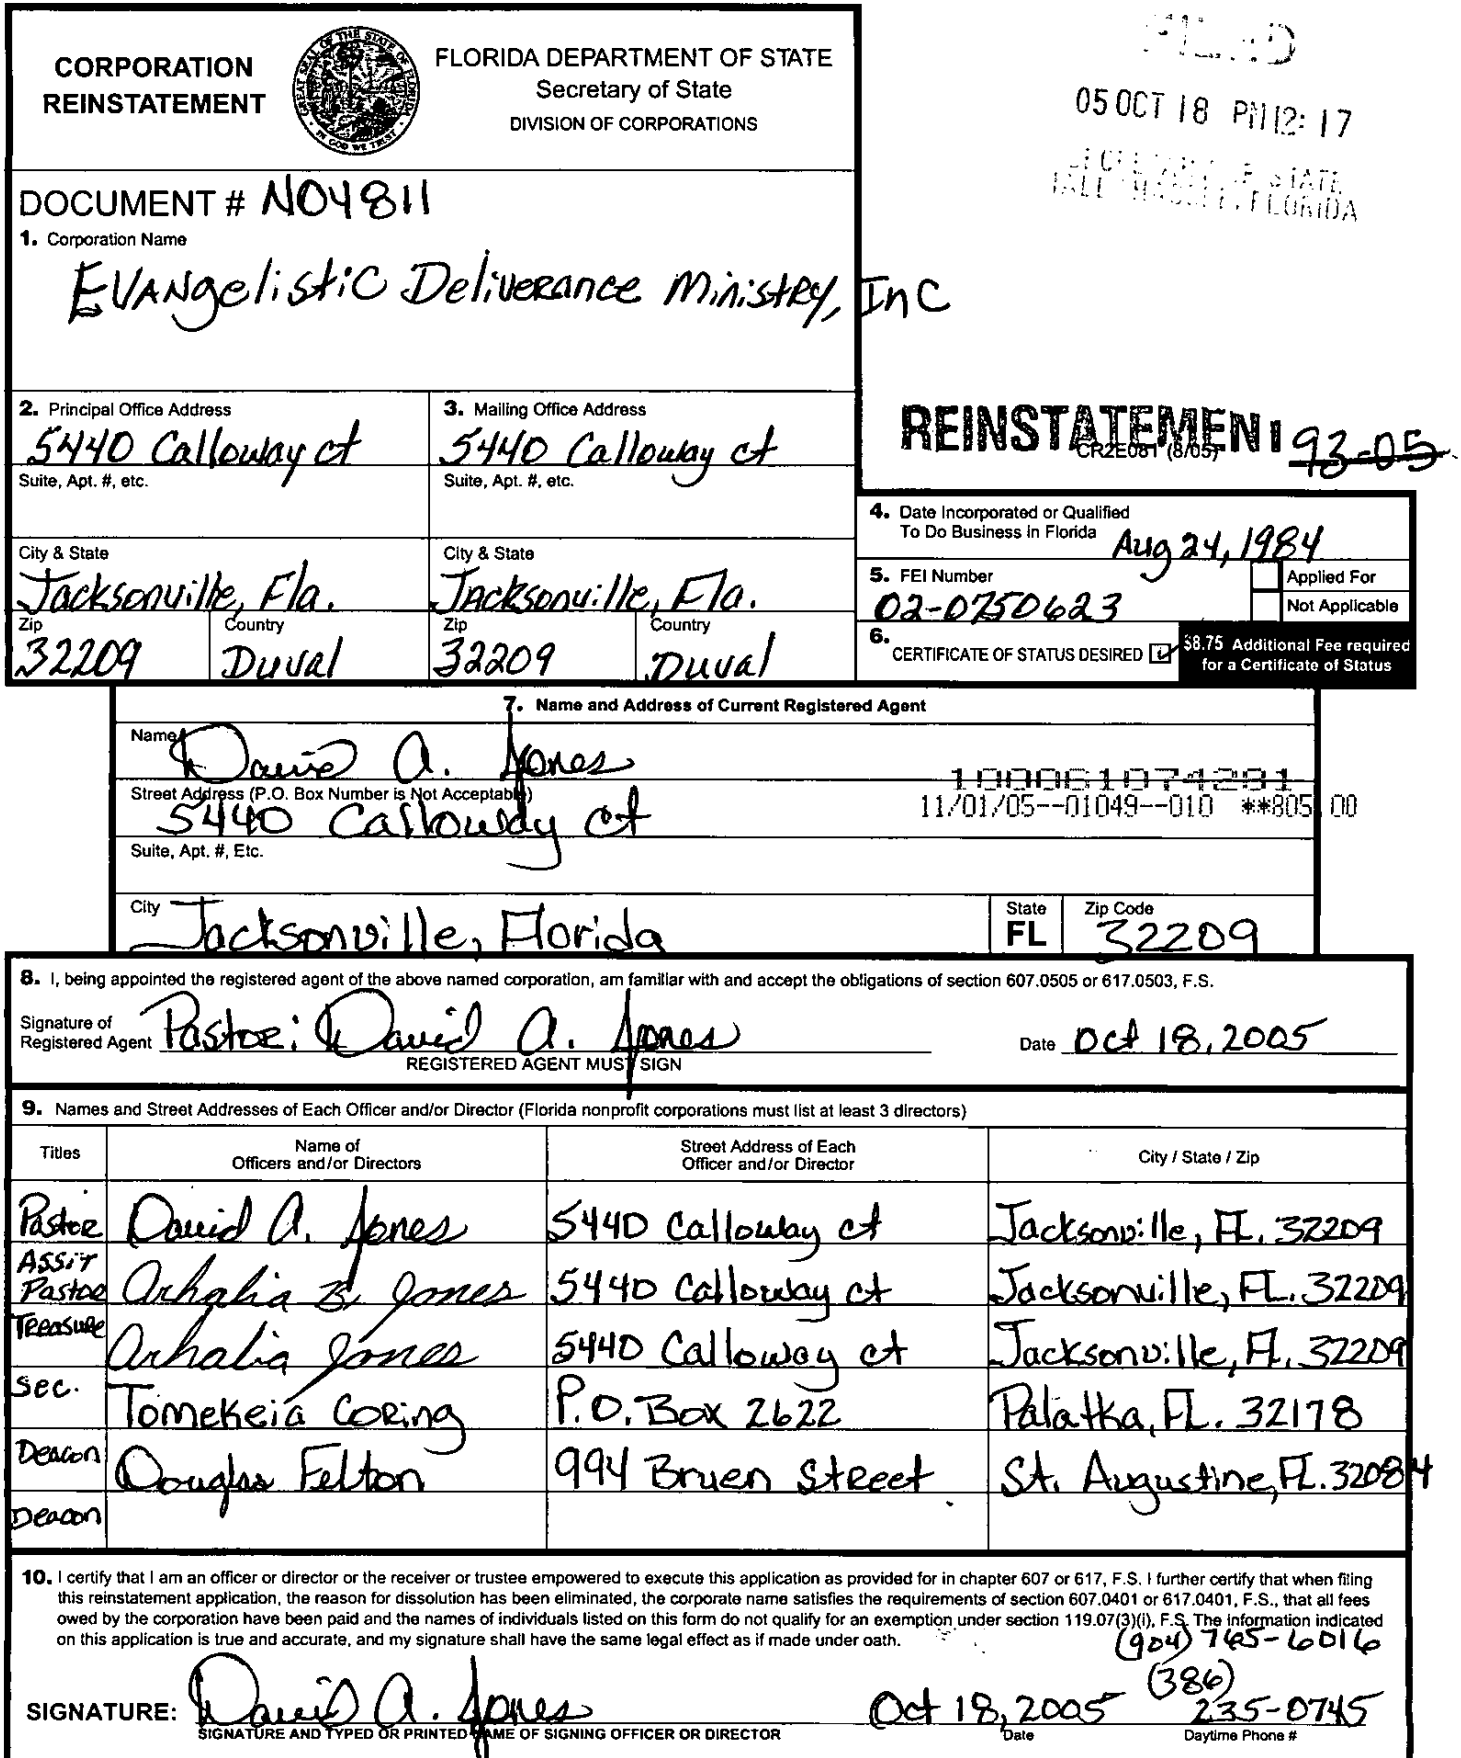 CORPORATION
REINSTATEMENT
GREAT SEAL OF THE STATE OF FLORIDA
IN GOD WE TRUST
FLORIDA DEPARTMENT OF STATE
Secretary of State
DIVISION OF CORPORATIONS
FILED
05 OCT 18 PM 12: 17
SECRETARY OF STATE
TALLAHASSEE, FLORIDA
DOCUMENT # N04811
1. Corporation Name
Evangelistic Deliverance Ministry, Inc
2. Principal Office Address
5440 Calloway ct
Suite, Apt. #, etc.
City & State
Jacksonville, Fla.
Zip
32209
Country
Duval
3. Mailing Office Address
5440 Calloway ct
Suite, Apt. #, etc.
City & State
Jacksonville, Fla.
Zip
32209
Country
Duval
REINSTATEMENT 93-05
CR2E081 (8/05)
4. Date Incorporated or Qualified
To Do Business in Florida Aug 24, 1984
5. FEI Number
02-0750623
Applied For
Not Applicable
6. CERTIFICATE OF STATUS DESIRED
$8.75 Additional Fee required
for a Certificate of Status
7. Name and Address of Current Registered Agent
Name
David A. Jones
100061074291
Street Address (P.O. Box Number is Not Acceptable)
5440 Calloway ct
11/01/05--01049--010 **805.00
Suite, Apt. #, Etc.
City
Jacksonville, Florida
State
FL
Zip Code
32209
8. I, being appointed the registered agent of the above named corporation, am familiar with and accept the obligations of section 607.0505 or 617.0503, F.S.
Signature of
Registered Agent Pastor: David A. Jones
REGISTERED AGENT MUST SIGN
Date Oct 18, 2005
9. Names and Street Addresses of Each Officer and/or Director (Florida nonprofit corporations must list at least 3 directors)
Titles
Name of
Officers and/or Directors
Street Address of Each
Officer and/or Director
City / State / Zip
Pastor David A. Jones 5440 Calloway ct Jacksonville, FL. 32209
Assit
Pastor Arhalia B. Jones 5440 Calloway ct Jacksonville, FL. 32209
Treasure Arhalia Jones 5440 Calloway ct Jacksonville, FL. 32209
Sec. Tomekeia Coring P.O. Box 2622 Palatka, FL. 32178
Deacon Douglas Felton 994 Bruen Street St. Augustine, FL. 32084
Deacon
10. I certify that I am an officer or director or the receiver or trustee empowered to execute this application as provided for in chapter 607 or 617, F.S. I further certify that when filing
this reinstatement application, the reason for dissolution has been eliminated, the corporate name satisfies the requirements of section 607.0401 or 617.0401, F.S., that all fees
owed by the corporation have been paid and the names of individuals listed on this form do not qualify for an exemption under section 119.07(3)(i), F.S. The information indicated
on this application is true and accurate, and my signature shall have the same legal effect as if made under oath.
(904) 765-6016
(386)
SIGNATURE: David A. Jones Oct 18, 2005 235-0745
SIGNATURE AND TYPED OR PRINTED NAME OF SIGNING OFFICER OR DIRECTOR
Date
Daytime Phone #